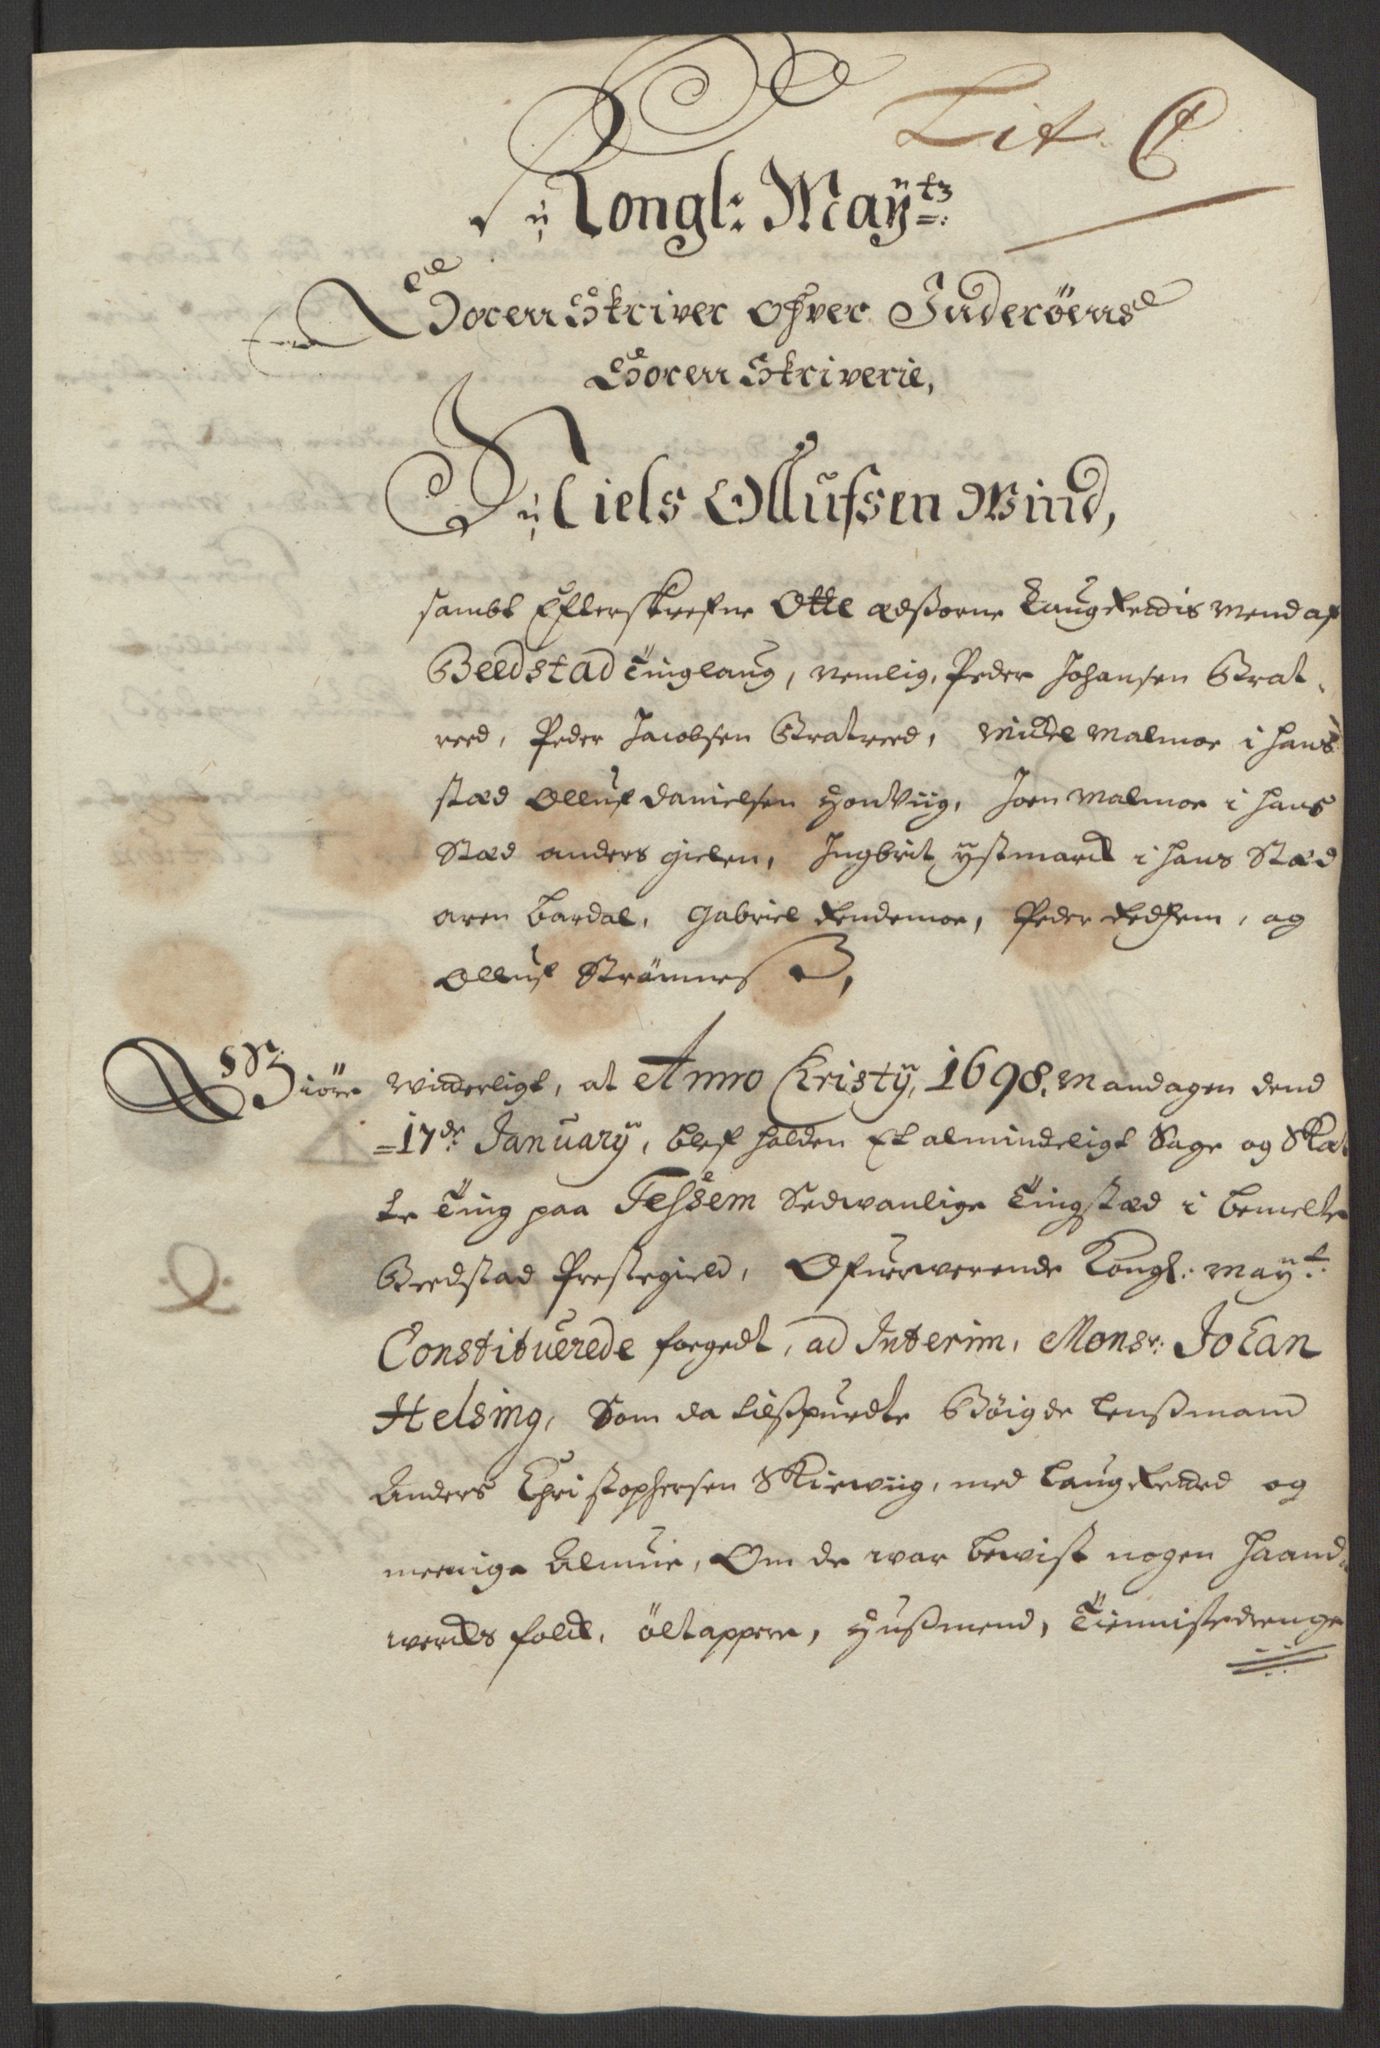 Lit. C
Kongl: Maÿtz
Soren Skriver ofver Inderöens
Soren Skriverie,
Niels Ollufsen Wind,
sambt Efterskrefne Otte ædsorne Laugrettis mend af
Beedstad Tinglaug, nemlig, Peder Johansen Brat,
reed, Peder Jacobsen Bratreed, Mickel Malmoe i hans
stæd Olluf Danielsen Honviig, Joen Malmoe i hans
Stæd anders gielen, Ingbrit ÿstmarck i hans Stæd
aren Bardal, Gabriel Rendemoe, Peder Redhem, og
Olluf Strömnes,
Giöre vitterligt, at Anno Christÿ, 1698, Mandagen dend
17de Januarÿ, blef holden Et almindeligt Sage og Skat
te Ting paa Fehsem Sedwanlige Tingstæd i bemelte
Beedstad Prestegield, Ofuerwerende Kongl: Maÿt:
Constituerede foegedt, ad Interim, Monsr: Johan
Helsing, Som da tilspurdte Böigde Lensmand
Anders Christophersen Skierviig, med Laugretted og
meenige Almue, Om de war bewist nogen haand-
wercks folck, öltappere, Husmend, Tiennistedrenge